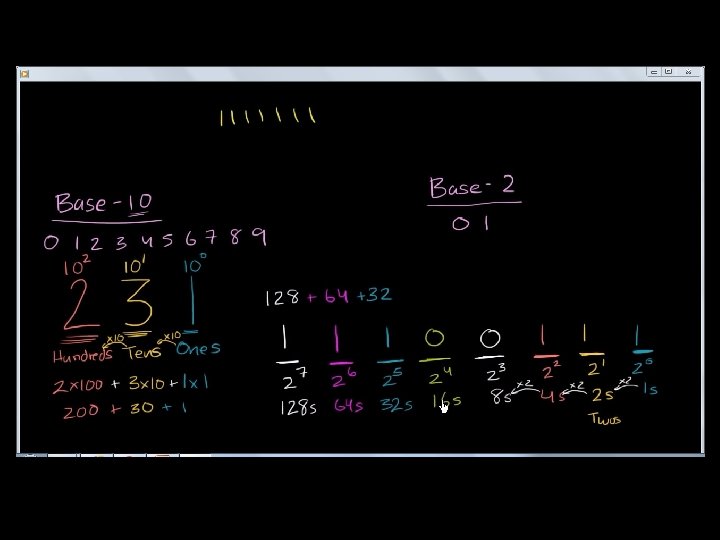 | | | | | | | |
Base-10
0 1 2 3 4 5 6 7 8 9
10² 10¹ 10⁰
2 3 1
x10 x10
Hundreds Tens Ones
2x100 + 3x10 + 1x1
200 + 30 + 1
Base-2
0 1
128 + 64 + 32
1 1 1 0 0 1 1 1
2⁷ 2⁶ 2⁵ 2⁴ 2³ 2² 2¹ 2⁰
x2 x2 x2
128s 64s 32s 16s 8s 4s 2s 1s
Twos